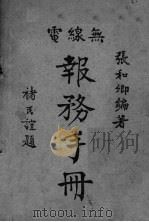 無線電
張和卿編著
報務手冊
褚民誼題